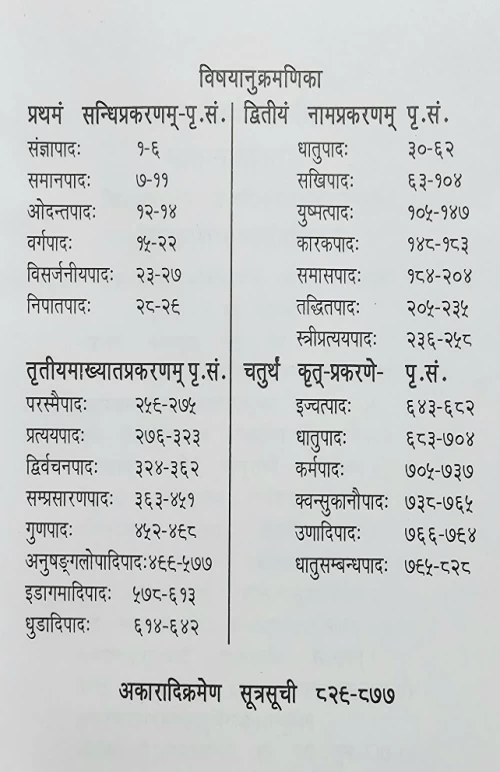 विषयानुक्रमणिका
प्रथमं सन्धिप्रकरणम्-पृ.सं.
संज्ञापादः १-६
समानपादः ७-११
ओदन्तपादः १२-१४
वर्गपादः १५-२२
विसर्जनीयपादः २३-२७
निपातपादः २८-२९
द्वितीयं नामप्रकरणम् पृ.सं.
धातुपादः ३०-६२
सखिपादः ६३-१०४
युष्मत्पादः १०५-१४७
कारकपादः १४८-१८३
समासपादः १८४-२०४
तद्धितपादः २०५-२३५
स्त्रीप्रत्ययपादः २३६-२५८
तृतीयमाख्यातप्रकरणम् पृ.सं.
परस्मैपादः २५९-२७५
प्रत्ययपादः २७६-३२३
द्विर्वचनपादः ३२४-३६२
सम्प्रसारणपादः ३६३-४५१
गुणपादः ४५२-४९८
अनुषङ्गलोपादिपादः४९९-५७७
इडागमादिपादः ५७८-६१३
धुडादिपादः ६१४-६४२
चतुर्थं कृत्-प्रकरणे- पृ.सं.
इज्वत्पादः ६४३-६८२
धातुपादः ६८३-७०४
कर्मपादः ७०५-७३७
क्वन्सुकानौपादः ७३८-७६५
उणादिपादः ७६६-७९४
धातुसम्बन्धपादः ७९५-८२८
अकारादिक्रमेण सूत्रसूची ८२९-८७७